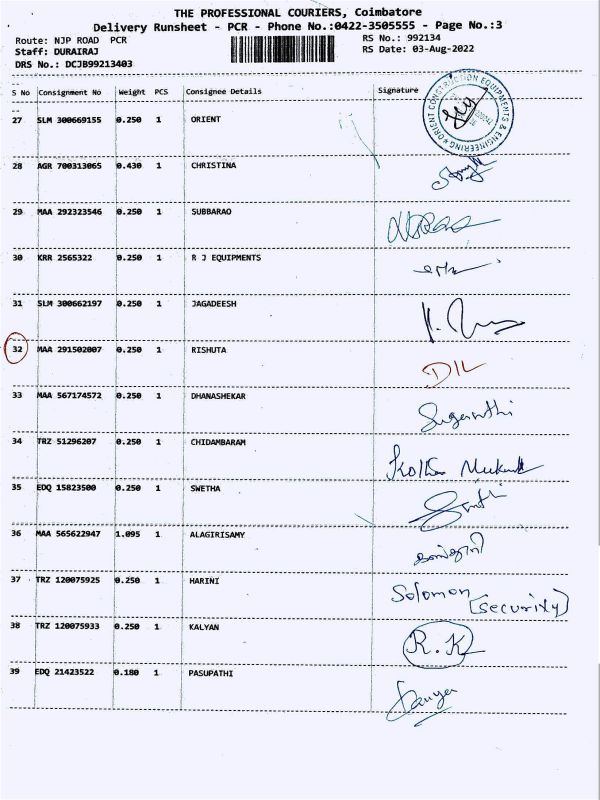 THE PROFESSIONAL COURIERS, Coimbatore
Delivery Runsheet - PCR - Phone No.:0422-3505555 - Page No.:3
Route: NJP ROAD PCR RS No.: 992134
Staff: DURAIRAJ RS Date: 03-Aug-2022
DRS No.: DCJB99213403
S No Consignment No Weight PCS Consignee Details Signature
27 SLM 300669155 0.250 1 ORIENT
ORIENT CONSTRUCTION EQUIPMENTS & ENGINEERING
28 AGR 700313065 0.430 1 CHRISTINA
29 MAA 292323546 0.250 1 SUBBARAO
30 KRR 2565322 0.250 1 R J EQUIPMENTS
31 SLM 300662197 0.250 1 JAGADEESH
32 MAA 291502007 0.250 1 RISHUTA
DIL
33 MAA 567174572 0.250 1 DHANASHEKAR
Suganthi
34 TRZ 51296207 0.250 1 CHIDAMBARAM
35 EDQ 15823500 0.250 1 SWETHA
36 MAA 565622947 1.095 1 ALAGIRISAMY
37 TRZ 120075925 0.250 1 HARINI
Solomon (Security)
38 TRZ 120075933 0.250 1 KALYAN
R.K
39 EDQ 21423522 0.180 1 PASUPATHI